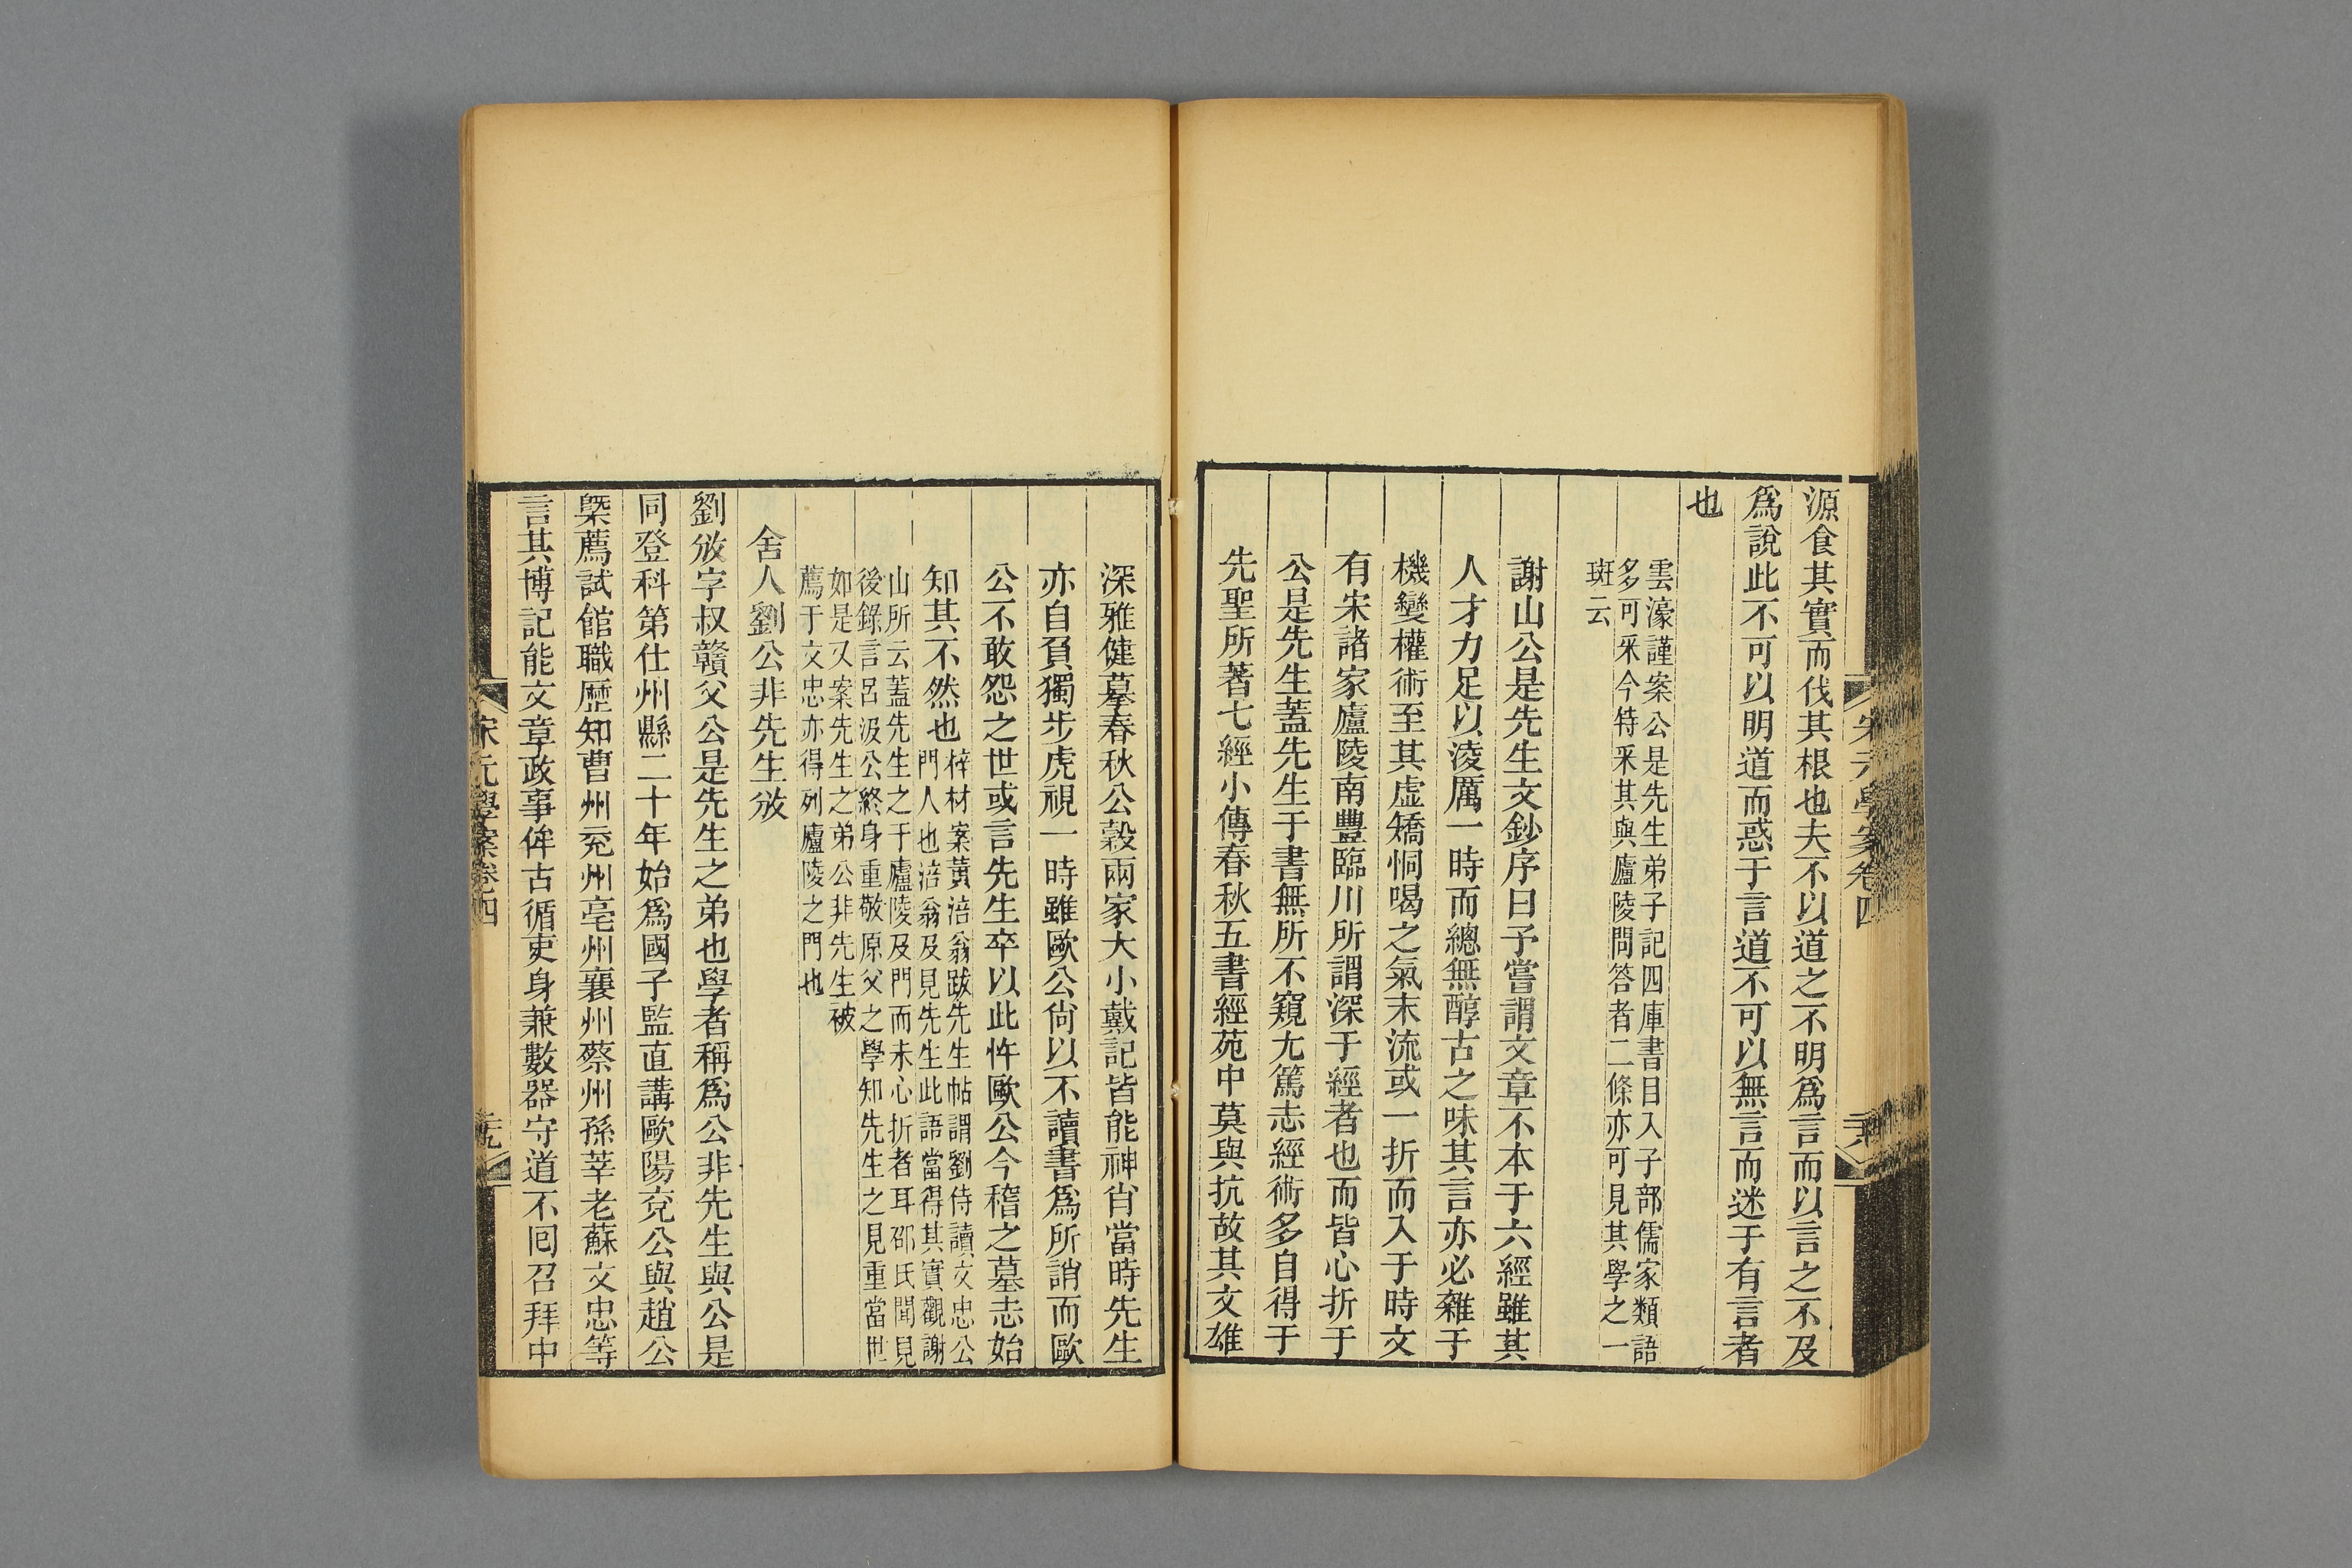 源食其實而伐其根也夫不以道之不明爲言而以言之不及
爲說此不可以明道而惑于言道不可以無言而迷于有言者
也
雲濠謹案公是先生弟子記四庫書目入子部儒家類語
多可采今特采其與廬陵問答者二條亦可見其學之一
斑云
謝山公是先生文鈔序曰予嘗謂文章不本于六經雖其
人才力足以淩厲一時而總無醇古之味其言亦必雜于
機變權術至其虛矯恫喝之氣末流或一折而入于時文
有宋諸家廬陵南豐臨川所謂深于經者也而皆心折于
公是先生蓋先生于書無所不窺尤篤志經術多自得于
先聖所著七經小傳春秋五書經苑中莫與抗故其文雄
宋元學案卷四
深雅健摹春秋公穀兩家大小戴記皆能神肖當時先生
亦自負獨步虎視一時雖歐公尙以不讀書爲所誚而歐
公不敢怨之世或言先生卒以此忤歐公今稽之墓志始
知其不然也
梓材案黃涪翁跋先生帖謂劉侍讀文忠公
門人也涪翁及見先生此語當得其實觀謝
山所云蓋先生之于廬陵及門而未心折者耳邵氏聞見
後錄言呂汲公終身重敬原父之學知先生之見重當世
如是又案先生之弟公非先生被
薦于文忠亦得列廬陵之門也
舍人劉公非先生攽
劉攽字叔贛父公是先生之弟也學者稱爲公非先生與公是
同登科第仕州縣二十年始爲國子監直講歐陽兗公與趙公
槩薦試館職歷知曹州兗州亳州襄州蔡州孫莘老蘇文忠等
言其博記能文章政事侔古循吏身兼數器守道不囘召拜中
宋元學案卷四